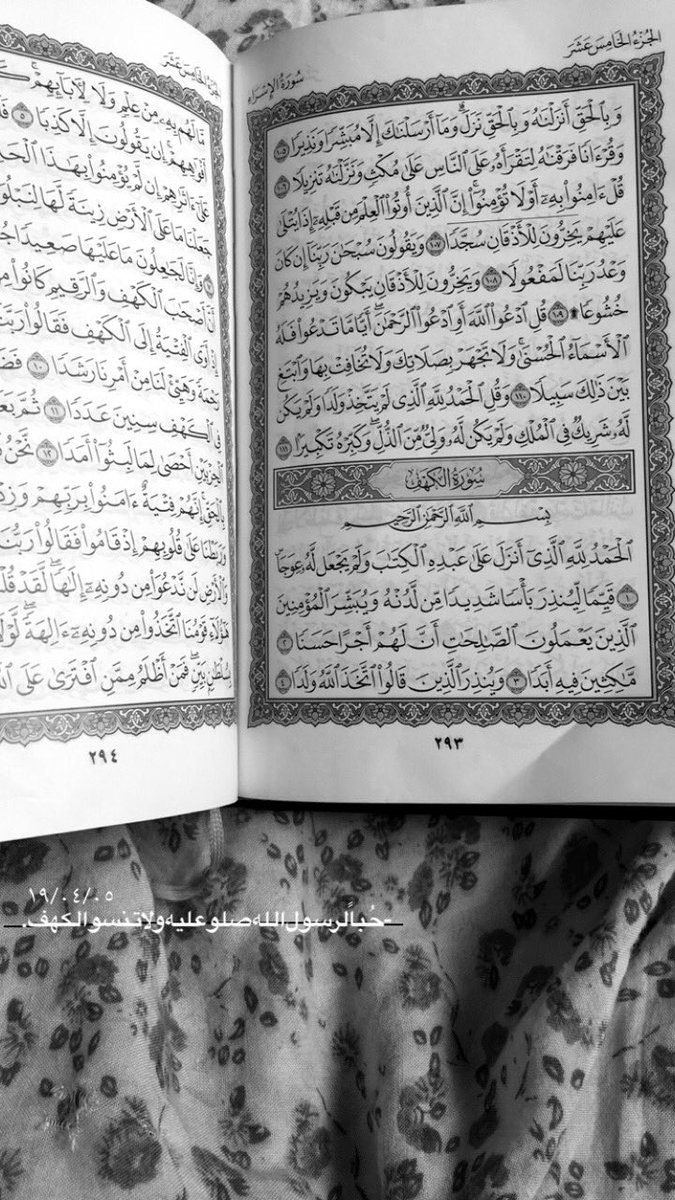 الجُزْءُ الخَامِسَ عَشَرَ
سُورَةُ الإِسْرَاءِ
وَبِالْحَقِّ أَنزَلْنَٰهُ وَبِالْحَقِّ نَزَلَ ۗ وَمَآ أَرْسَلْنَٰكَ إِلَّا مُبَشِّرًا وَنَذِيرًا ١٠٥
وَقُرْءَانًا فَرَقْنَٰهُ لِتَقْرَأَهُۥ عَلَى ٱلنَّاسِ عَلَىٰ مُكْثٍ وَنَزَّلْنَٰهُ تَنزِيلًا ١٠٦
قُلْ ءَامِنُوا۟ بِهِۦٓ أَوْ لَا تُؤْمِنُوٓا۟ ۚ إِنَّ ٱلَّذِينَ أُوتُوا۟ ٱلْعِلْمَ مِن قَبْلِهِۦٓ إِذَا يُتْلَىٰ
عَلَيْهِمْ يَخِرُّونَ لِلْأَذْقَانِ سُجَّدًا ١٠٧ وَيَقُولُونَ سُبْحَٰنَ رَبِّنَآ إِن كَانَ
وَعْدُ رَبِّنَا لَمَفْعُولًا ١٠٨ وَيَخِرُّونَ لِلْأَذْقَانِ يَبْكُونَ وَيَزِيدُهُمْ
خُشُوعًا ۩ ١٠٩ قُلِ ٱدْعُوا۟ ٱللَّهَ أَوِ ٱدْعُوا۟ ٱلرَّحْمَٰنَ ۖ أَيًّا مَّا تَدْعُوا۟ فَلَهُ
ٱلْأَسْمَآءُ ٱلْحُسْنَىٰ ۚ وَلَا تَجْهَرْ بِصَلَاتِكَ وَلَا تُخَافِتْ بِهَا وَٱبْتَغِ
بَيْنَ ذَٰلِكَ سَبِيلًا ١١٠ وَقُلِ ٱلْحَمْدُ لِلَّهِ ٱلَّذِى لَمْ يَتَّخِذْ وَلَدًا وَلَمْ يَكُن
لَّهُۥ شَرِيكٌ فِى ٱلْمُلْكِ وَلَمْ يَكُن لَّهُۥ وَلِىٌّ مِّنَ ٱلذُّلِّ ۖ وَكَبِّرْهُ تَكْبِيرًۢا ١١١
سُورَةُ الكَهْفِ
بِسْمِ ٱللَّهِ ٱلرَّحْمَٰنِ ٱلرَّحِيمِ
ٱلْحَمْدُ لِلَّهِ ٱلَّذِىٓ أَنزَلَ عَلَىٰ عَبْدِهِ ٱلْكِتَٰبَ وَلَمْ يَجْعَل لَّهُۥ عِوَجَا ۜ
١ قَيِّمًا لِّيُنذِرَ بَأْسًا شَدِيدًا مِّن لَّدُنْهُ وَيُبَشِّرَ ٱلْمُؤْمِنِينَ
ٱلَّذِينَ يَعْمَلُونَ ٱلصَّٰلِحَٰتِ أَنَّ لَهُمْ أَجْرًا حَسَنًا ٢
مَّٰكِثِينَ فِيهِ أَبَدًا ٣ وَيُنذِرَ ٱلَّذِينَ قَالُوا۟ ٱتَّخَذَ ٱللَّهُ وَلَدًا ٤
٢٩٣
الجُزْءُ الخَامِسَ عَشَرَ
مَّا لَهُم بِهِۦ مِنْ عِلْمٍ وَلَا لِـَٔابَآئِهِمْ ۚ
أَفْوَٰهِهِمْ ۚ إِن يَقُولُونَ إِلَّا كَذِبًا ٥
عَلَىٰٓ ءَاثَٰرِهِمْ إِن لَّمْ يُؤْمِنُوا۟ بِهَٰذَا
جَعَلْنَا مَا عَلَى ٱلْأَرْضِ زِينَةً لَّهَا لِنَبْلُوَ
وَإِنَّا لَجَٰعِلُونَ مَا عَلَيْهَا صَعِيدًا
أَنَّ أَصْحَٰبَ ٱلْكَهْفِ وَٱلرَّقِيمِ كَانُوا۟
إِذْ أَوَى ٱلْفِتْيَةُ إِلَى ٱلْكَهْفِ فَقَالُوا۟
رَحْمَةً وَهَيِّئْ لَنَا مِنْ أَمْرِنَا رَشَدًا ١٠
فِى ٱلْكَهْفِ سِنِينَ عَدَدًا ١١ ثُمَّ
ٱلْحِزْبَيْنِ أَحْصَىٰ لِمَا لَبِثُوٓا۟ أَمَدًا ١٢ نَّحْنُ
بِٱلْحَقِّ ۚ إِنَّهُمْ فِتْيَةٌ ءَامَنُوا۟ بِرَبِّهِمْ
وَرَبَطْنَا عَلَىٰ قُلُوبِهِمْ إِذْ قَامُوا۟ فَقَالُوا۟ رَبُّنَا
وَٱلْأَرْضِ لَن نَّدْعُوَا۟ مِن دُونِهِۦٓ إِلَٰهًا ۖ لَّقَدْ
هَٰٓؤُلَآءِ قَوْمُنَا ٱتَّخَذُوا۟ مِن دُونِهِۦٓ ءَالِهَةً ۖ
بِسُلْطَٰنٍۭ بَيِّنٍ ۖ فَمَنْ أَظْلَمُ مِمَّنِ ٱفْتَرَىٰ عَلَى
٢٩٤
١٩/٠٤/٠٥
-حُباًلرسول الله صلو عليه ولا تنسو الكهف.